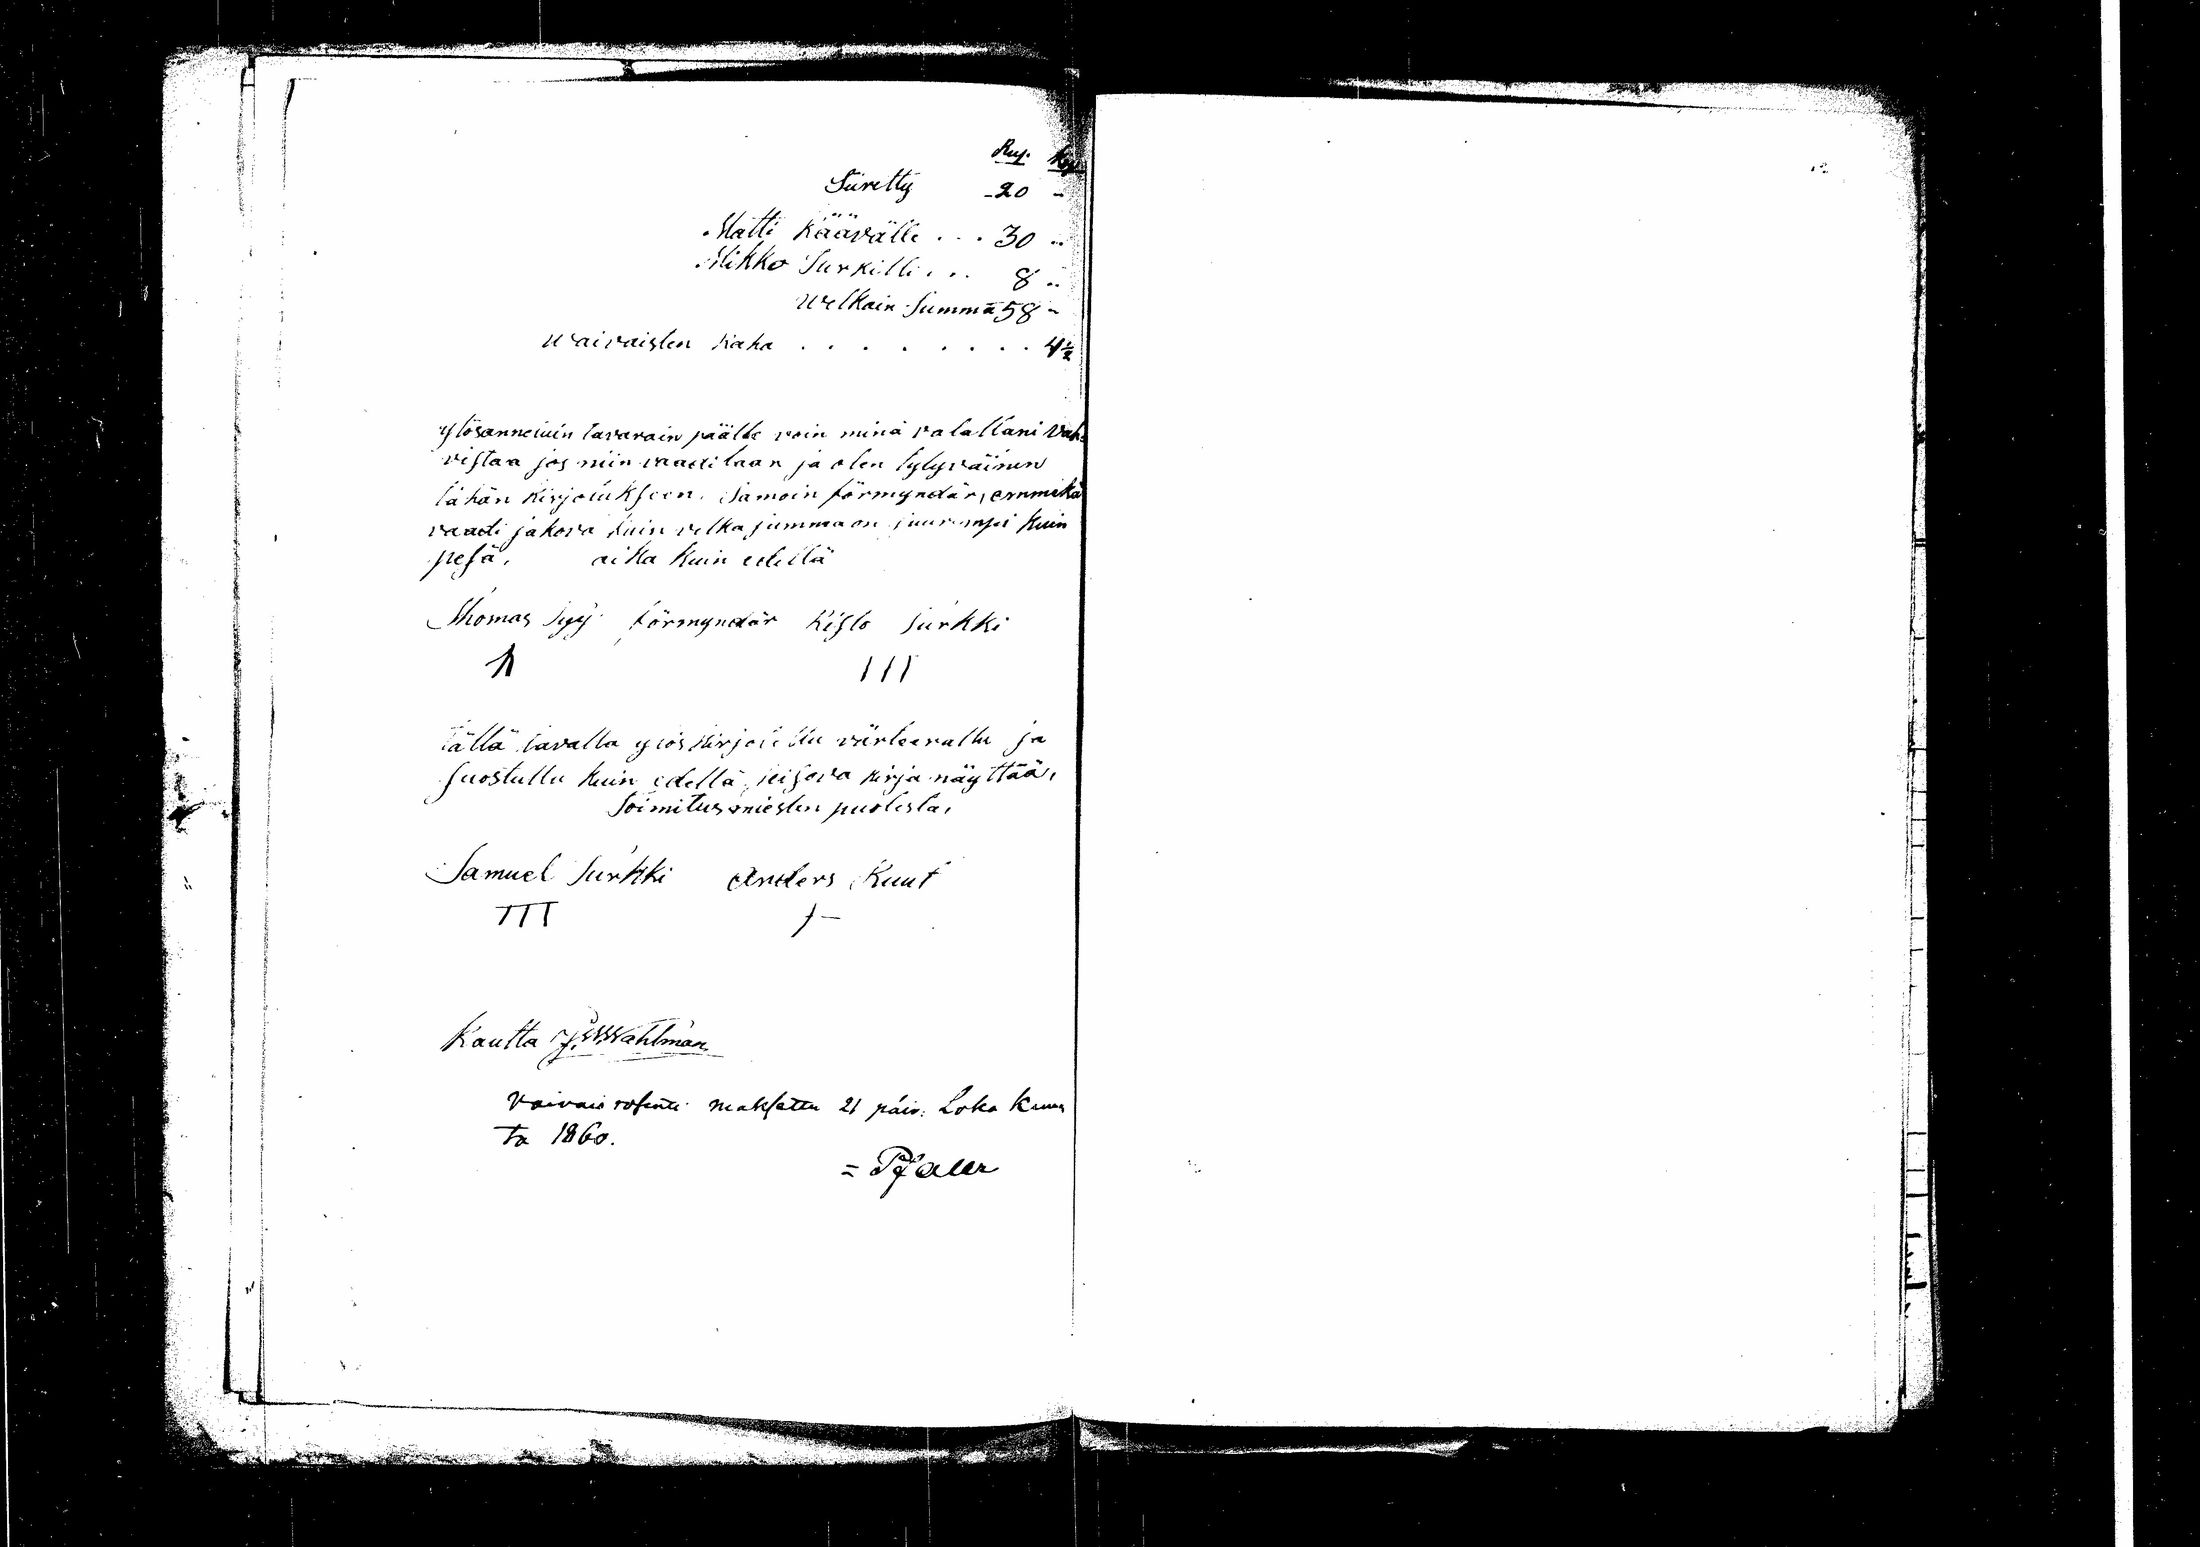 Rup. Kop.
Siiretty 20 "
Matti Käävälle . . . 30 "
Mikko Surkilli . . . 8 "
Welkain Summa 58 "
Waivaisten Raha . . . . . . . . 4 1/2
ylösannetuin tavarain päälle voin minä valallani vah=
vistaa jos niin vaaditaan ja olen tytyväinen
tähän kirjotukseen. Samoin förmyndär, emmekä
vaadi jakova kuin velka summa on suurempi kuin
pesä. aika kuin edellä
Thomas förmyndär Kisto Surkki
tällä tavalla ylöskirjotettu värteerattu ja
suostuttu kuin edellä seisova kirja näyttää,
Toimitusmiesten puolesta,
Samuel Surkki Anders Kuut
Kautta J. W. Wahlman
Vaivais rosenti maksettu 21 päiv: Loka Kuus
ta 1860.
= Pfaler